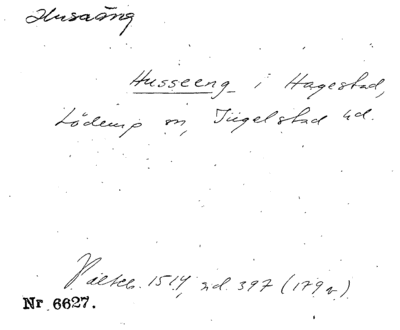 Husaäng
Husseeng i Hagestad,
Löderup sn, Ingelstad hd.
Pältcb. 1514, sid. 397 (179v).
Nr 6627.